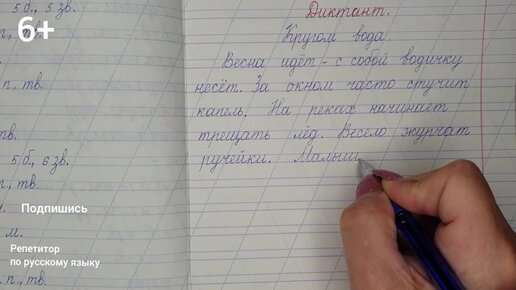 5 б., 5 зв.
6+
п, тв.
п, тв.
тв.
5 б., 6 зв.
п, тв.
Подпишись
м.
Репетитор
по русскому языку
п, тв.
Диктант.
Кругом вода
Весна идёт - с собой водичку
несёт. За окном часто стучит
капель. На реках начинает
трещать лёд. Весело журчат
ручейки. Малыш